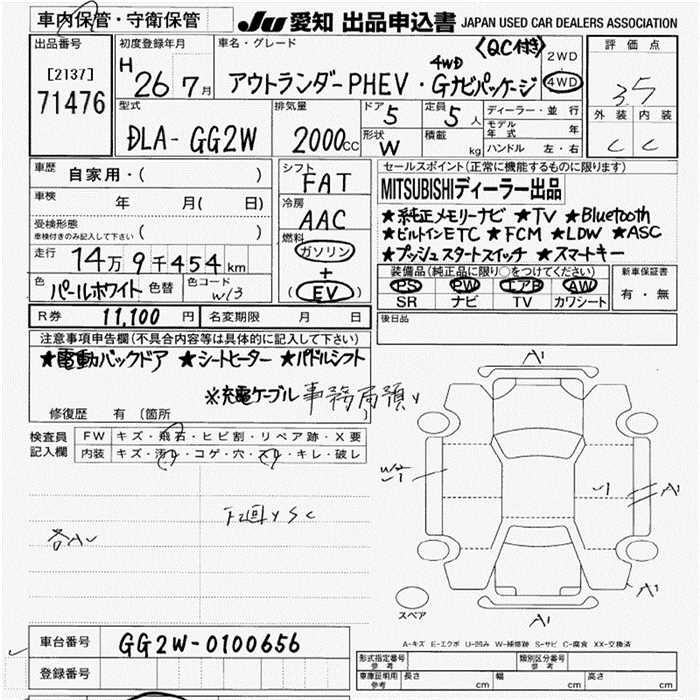 車内保管・守衛保管
JU 愛知 出品申込書 JAPAN USED CAR DEALERS ASSOCIATION
出品番号
[2137]
71476
初度登録年月
H 26 7月
車名・グレード
(QC付き)
4WD
アウトランダーPHEV・Gナビパッケージ
2WD
4WD
評価点
3.5
外装 内装
C C
型式
DLA-GG2W
排気量
2000cc
ドア 5
定員 5人
形状 W
積載 kg
ディーラー・並行
モデル年式 年
ハンドル 左・右
車歴 自家用・( )
車検 年 月( 日)
受検形態
車検付きのみ記入して下さい ( )
走行 14万9千454km
色 パールホワイト 色替 色コード W13
シフト
FAT
冷房
AAC
燃料
ガソリン
+
(EV)
セールスポイント(正常に機能するものに限ります)
MITSUBISHIディーラー出品
★純正メモリーナビ ★TV ★Bluetooth
★ビルトインETC ★FCM ★LDW ★ASC
★プッシュスタートスイッチ ★スマートキー
装備品(純正品に限り○をつけてください)
PS PW エアB AW
SR ナビ TV カワシート
新車保証書
有・無
R券 11,100円 名変期限 月 日
後日品
注意事項申告欄(不具合内容等は具体的に記入して下さい)
★電動バックドア ★シートヒーター ★パドルシフト
※充電ケーブル事務局預り
修復歴 有 (箇所
検査員記入欄
FW キズ・飛石・ヒビ割・リペア跡・X要
内装 キズ・汚れ・コゲ・穴・スレ・キレ・破レ
下回りSC
各AU
A1
W2
U1
U1
A1
A1
A1
スペア
A-キズ E-エクボ U-凹み W-補修跡 S-サビ C-腐食 XX-交換済
車台番号 GG2W-0100656
登録番号
形式指定番号 参考
類別区分番号 参考
車庫証明用 参考 長さ cm 幅 cm 高さ cm